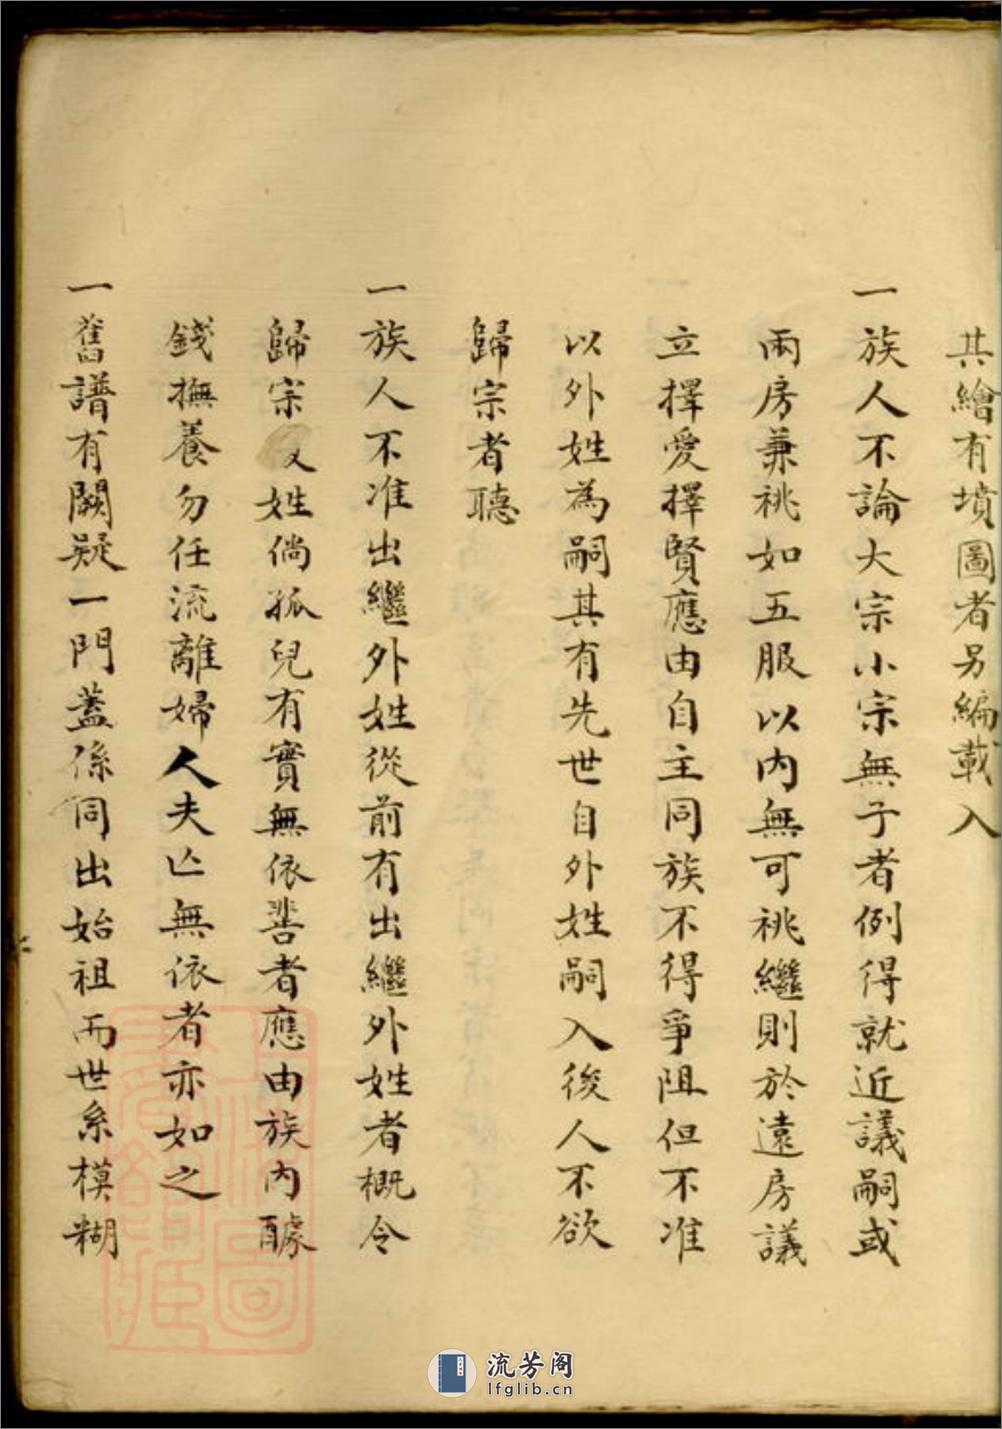 其繪有墳圖者另編載入
一族人不論大宗小宗無子者例得就近議嗣或
兩房兼祧如五服以內無可祧繼則於遠房議
立擇愛擇賢應由自主同族不得爭阻但不准
以外姓為嗣其有先世自外姓嗣入後人不欲
歸宗者聽
一族人不准出繼外姓從前有出繼外姓者概令
歸宗反姓倘孤兒有實無依者應由族內醵
錢撫養勿任流離婦人夫亡無依者亦如之
一舊譜有闕疑一門蓋係同出始祖而世系模糊
流芳阁
lfglib.cn